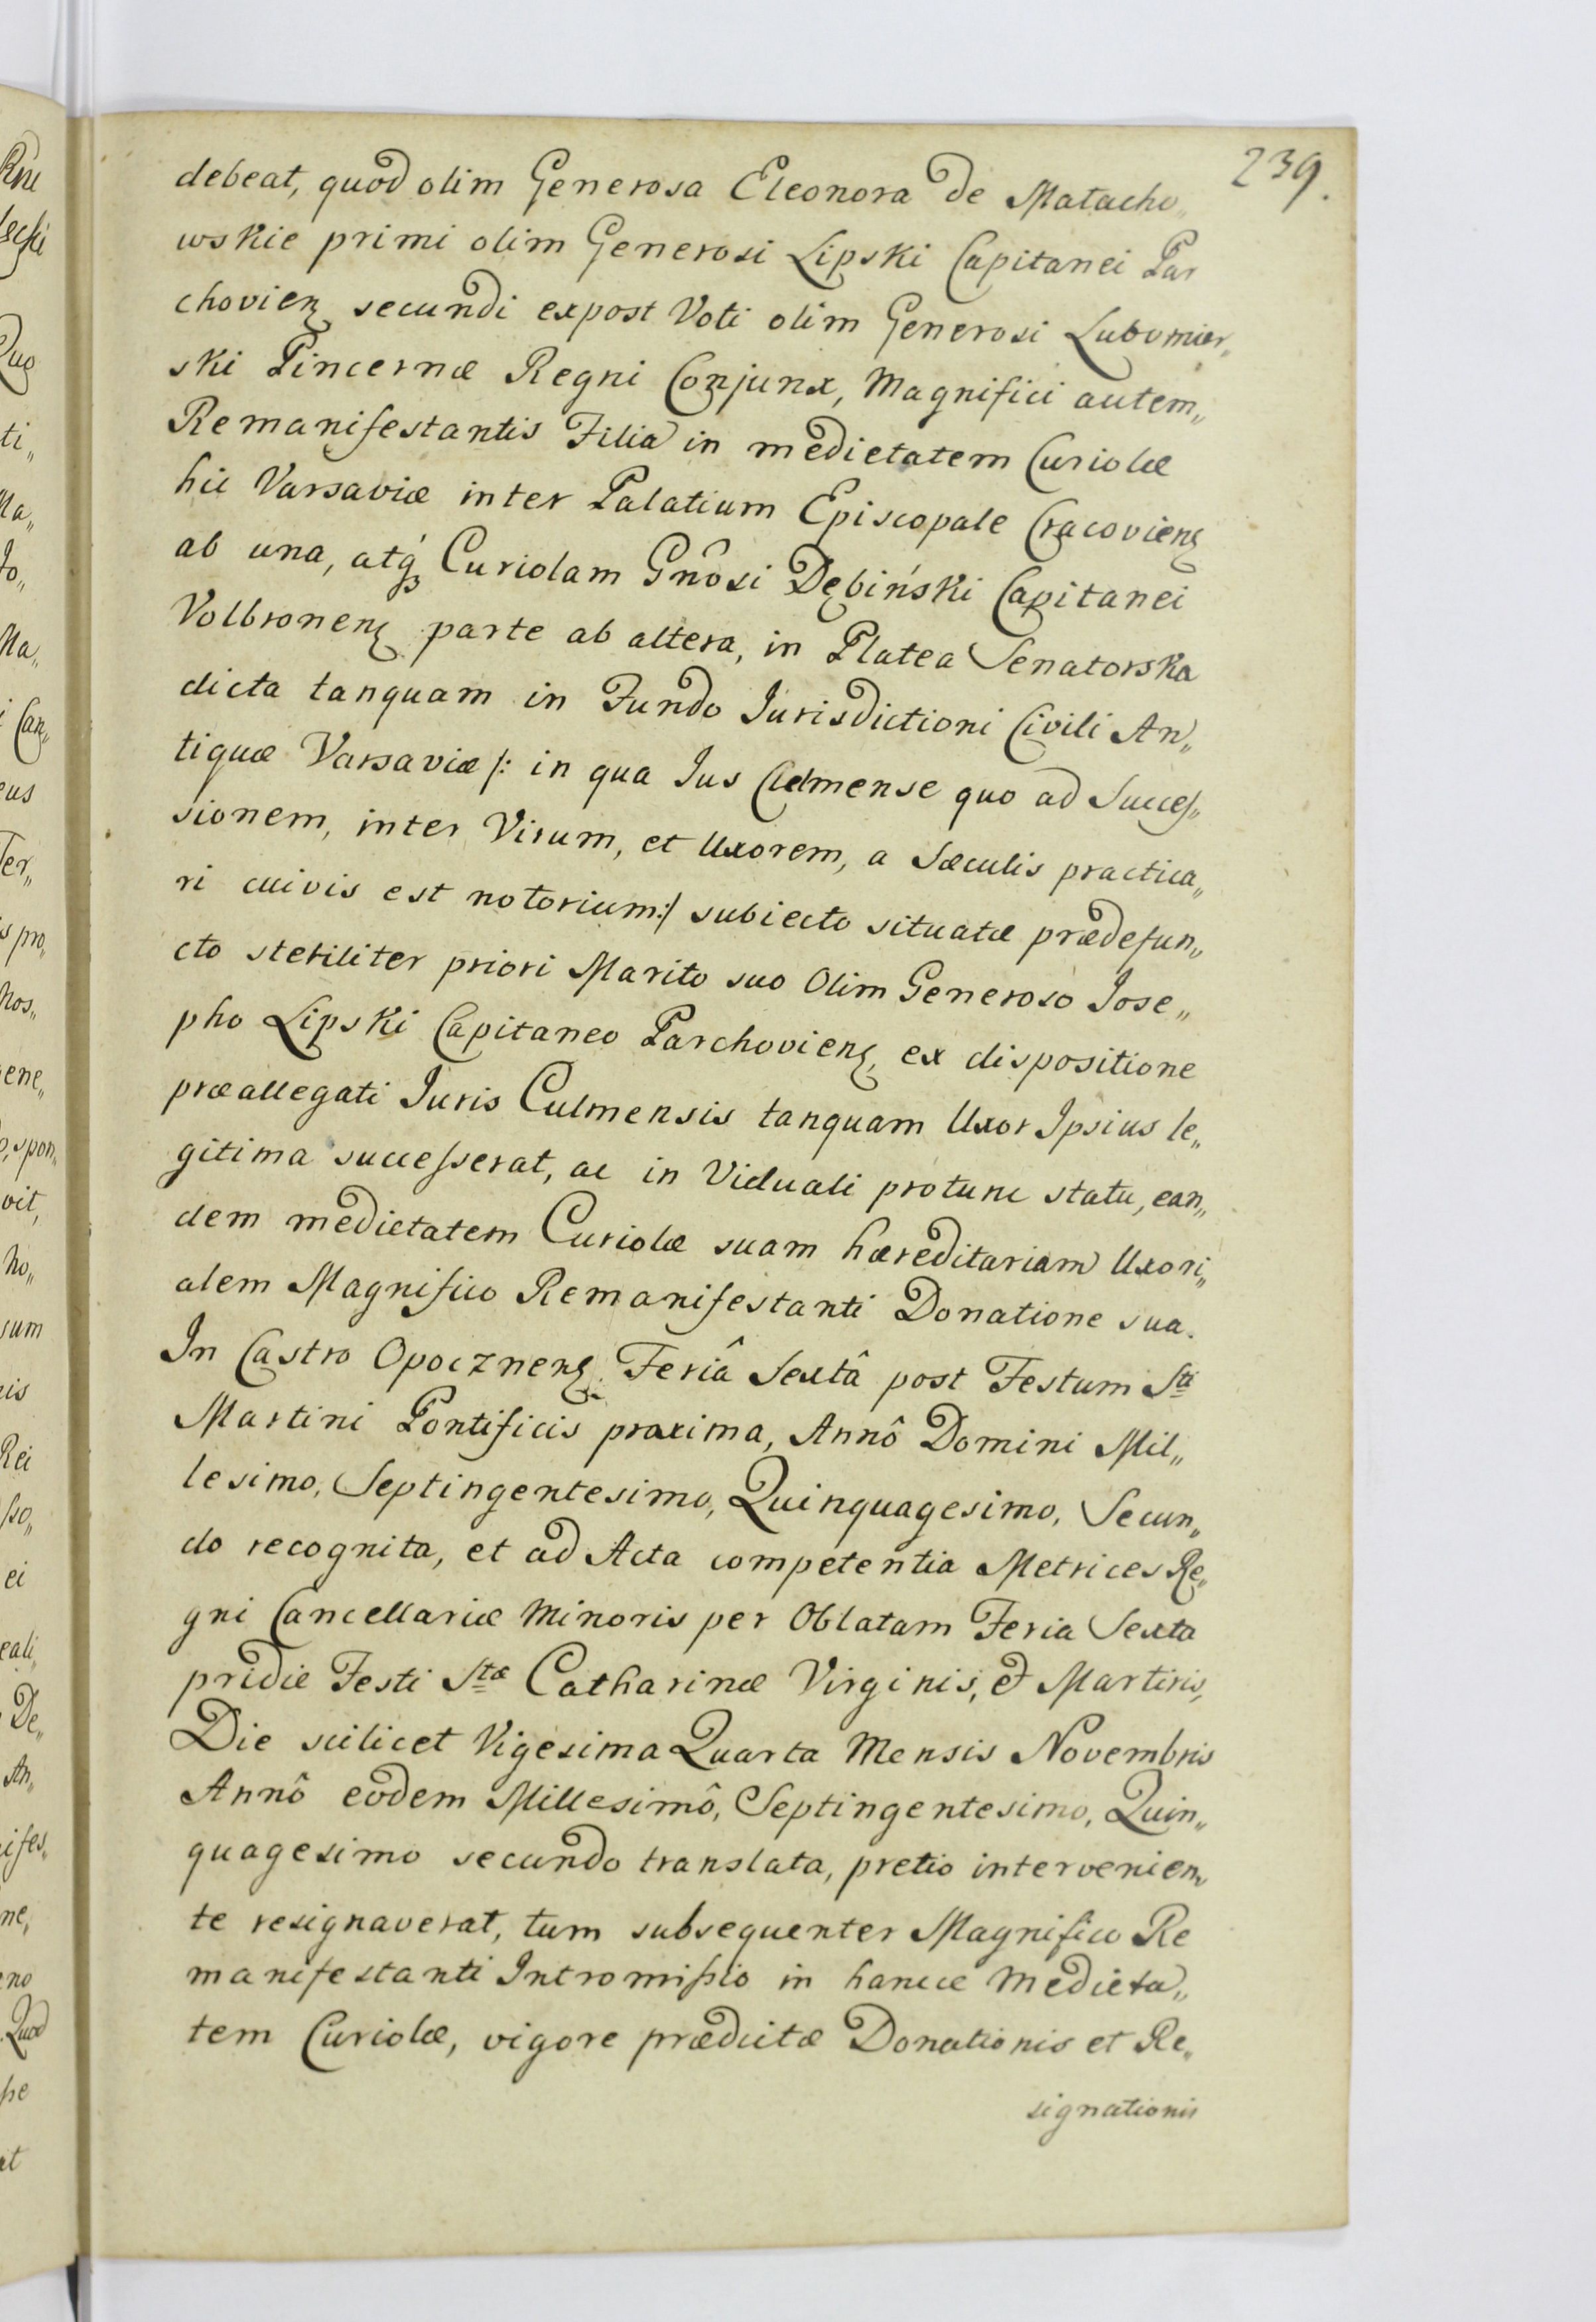 239.
debeat, quod olim Generosa Eleonora de Małacho„
wskie primi olim Generosi Lipski Capitanei Par
chovien̄ secundi expost Voti olim Generosi Lubomier„
ski Pincernæ Regni Conjunx, Magnifici autem„
Remanifestantis Filia in medietatem Curiolæ
hic Varsaviæ inter Palatium Episcopale Cracovien̄
ab una, atq́ꝫ Curiolam Gnôsi Dębiński Capitanei
Volbronen̄ parte ab altera, in Platea Senatorska
dicta tanquam in Fundo Jurisdictioni Civili An„
tiquæ Varsaviæ /: in qua Jus Culmense quo ad Succes„
sionem, inter Virum, et Uxorem, a Sæculis practica„
ri cuivis est notorium:/ subiecto situatæ prædefun„
cto steriliter priori Marito suo Olim Generoso Jose„
pho Lipski Capitaneo Parchovien̄, ex dispositione
præallegati Juris Culmensis tanquam Uxor Ipsius le„
gitima successerat, ac in Viduali protunc statu, ean„
dem medietatem Curiolæ suam hæreditariam Uxori„
alem Magnifico Remanifestanti Donatione sua.
In Castro Opocznen̄. Feriâ Sextâ post Festum Sti
Martini Pontificis proxima, Annô Domini Mil„
lesimo, Septingentesimo, Quinquagesimo, Secun„
do recognita, et ad Acta competentia Metrices Re„
gni Cancellariæ Minoris per Oblatam Feria Sexta
pridie Festi Stæ Catharinæ Virginis, et Martiris,
Die scilicet Vigesima Quarta Mensis Novembris
Annô eodem Millesimô, Septingentesimo, Quin„
quagesimo secundo translata, pretio intervenien„
te resignaverat, tum subsequenter Magnifico Re
manifestanti Intromissio in hancce Medieta„
tem Curiolæ, vigore prædictæ Donationis et Re„
signationis